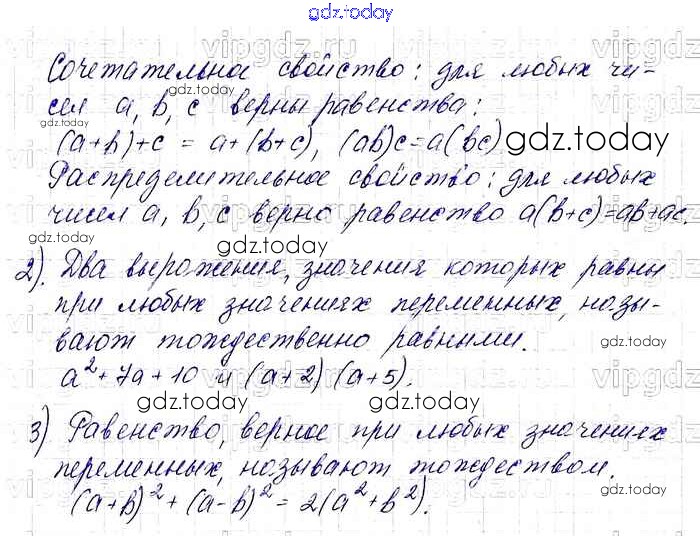 gdz.today
Сочетательное свойство: для любых чи-
сел a, b, c верны равенства:
(a+b)+c = a+(b+c), (ab)c=a(bc)
Распределительное свойство: для любых
чисел a, b, c верно равенство a(b+c)=ab+ac.
2). Два выражения, значения которых равны
при любых значениях переменных, назы-
вают тождественно равными.
a²+7a+10 и (a+2)(a+5).
3) Равенство, верное при любых значениях
переменных, называют тождеством.
(a+b)²+(a-b)²=2(a²+b²).